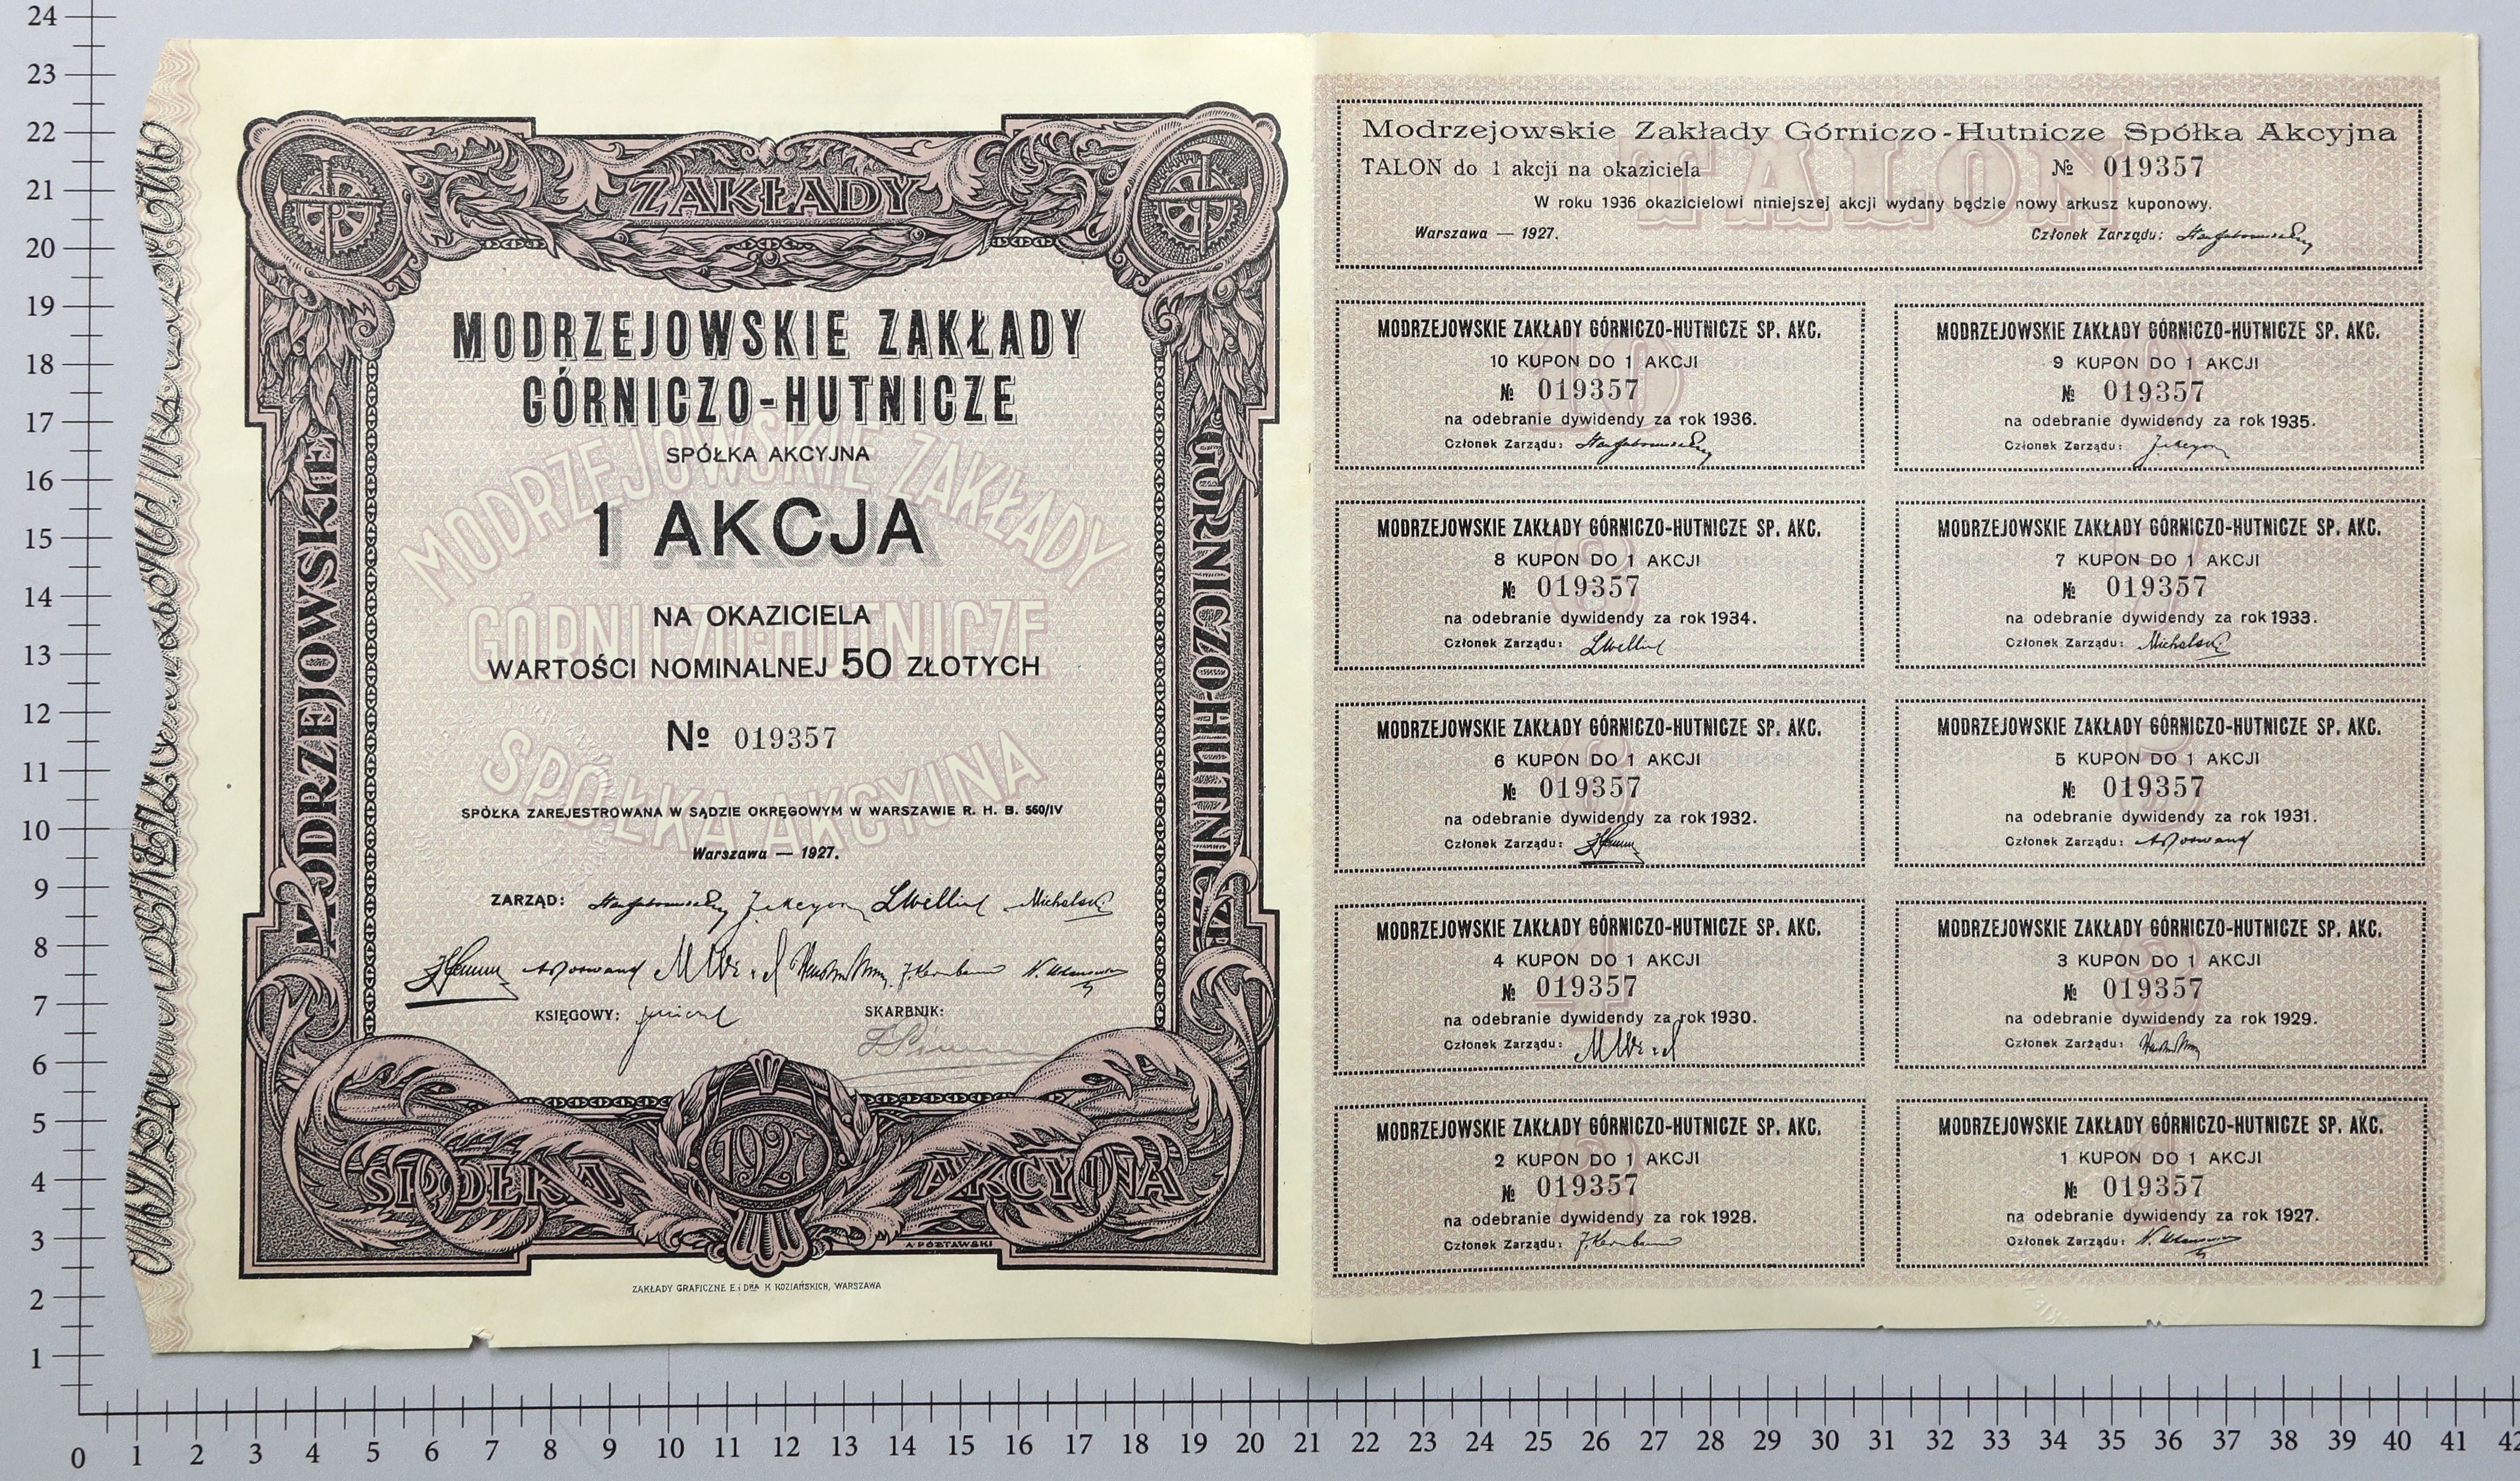 ZAKŁADY
MODRZEJOWSKIE
GÓRNICZO-HUTNICZE
MODRZEJOWSKIE ZAKŁADY
GÓRNICZO-HUTNICZE
SPÓŁKA AKCYJNA
1 AKCJA
NA OKAZICIELA
WARTOŚCI NOMINALNEJ 50 ZŁOTYCH
№ 019357
SPÓŁKA ZAREJESTROWANA W SĄDZIE OKRĘGOWYM W WARSZAWIE R. H. B. 560/IV
Warszawa — 1927.
ZARZĄD: Michalski
KSIĘGOWY: SKARBNIK:
MODRZEJOWSKIE ZAKŁADY
GÓRNICZO-HUTNICZE
SPÓŁKA AKCYJNA
1927
SPÓŁKA AKCYJNA
A. PÓŁTAWSKI
ZAKŁADY GRAFICZNE E. i DRA K KOZIAŃSKICH, WARSZAWA
TALON
Modrzejowskie Zakłady Górniczo-Hutnicze Spółka Akcyjna
TALON do 1 akcji na okaziciela № 019357
W roku 1936 okazicielowi niniejszej akcji wydany będzie nowy arkusz kuponowy.
Warszawa — 1927. Członek Zarządu:
MODRZEJOWSKIE ZAKŁADY GÓRNICZO-HUTNICZE SP. AKC.
10 KUPON DO 1 AKCJI
№ 019357
na odebranie dywidendy za rok 1936.
Członek Zarządu:
MODRZEJOWSKIE ZAKŁADY GÓRNICZO-HUTNICZE SP. AKC.
9 KUPON DO 1 AKCJI
№ 019357
na odebranie dywidendy za rok 1935.
Członek Zarządu:
MODRZEJOWSKIE ZAKŁADY GÓRNICZO-HUTNICZE SP. AKC.
8 KUPON DO 1 AKCJI
№ 019357
na odebranie dywidendy za rok 1934.
Członek Zarządu:
MODRZEJOWSKIE ZAKŁADY GÓRNICZO-HUTNICZE SP. AKC.
7 KUPON DO 1 AKCJI
№ 019357
na odebranie dywidendy za rok 1933.
Członek Zarządu: Michalski
MODRZEJOWSKIE ZAKŁADY GÓRNICZO-HUTNICZE SP. AKC.
6 KUPON DO 1 AKCJI
№ 019357
na odebranie dywidendy za rok 1932.
Członek Zarządu:
MODRZEJOWSKIE ZAKŁADY GÓRNICZO-HUTNICZE SP. AKC.
5 KUPON DO 1 AKCJI
№ 019357
na odebranie dywidendy za rok 1931.
Członek Zarządu:
MODRZEJOWSKIE ZAKŁADY GÓRNICZO-HUTNICZE SP. AKC.
4 KUPON DO 1 AKCJI
№ 019357
na odebranie dywidendy za rok 1930.
Członek Zarządu:
MODRZEJOWSKIE ZAKŁADY GÓRNICZO-HUTNICZE SP. AKC.
3 KUPON DO 1 AKCJI
№ 019357
na odebranie dywidendy za rok 1929.
Członek Zarządu:
MODRZEJOWSKIE ZAKŁADY GÓRNICZO-HUTNICZE SP. AKC.
2 KUPON DO 1 AKCJI
№ 019357
na odebranie dywidendy za rok 1928.
Członek Zarządu:
MODRZEJOWSKIE ZAKŁADY GÓRNICZO-HUTNICZE SP. AKC.
1 KUPON DO 1 AKCJI
№ 019357
na odebranie dywidendy za rok 1927.
Członek Zarządu:
24
23
22
21
20
19
18
17
16
15
14
13
12
11
10
9
8
7
6
5
4
3
2
1
0 1 2 3 4 5 6 7 8 9 10 11 12 13 14 15 16 17 18 19 20 21 22 23 24 25 26 27 28 29 30 31 32 33 34 35 36 37 38 39 40 41 42